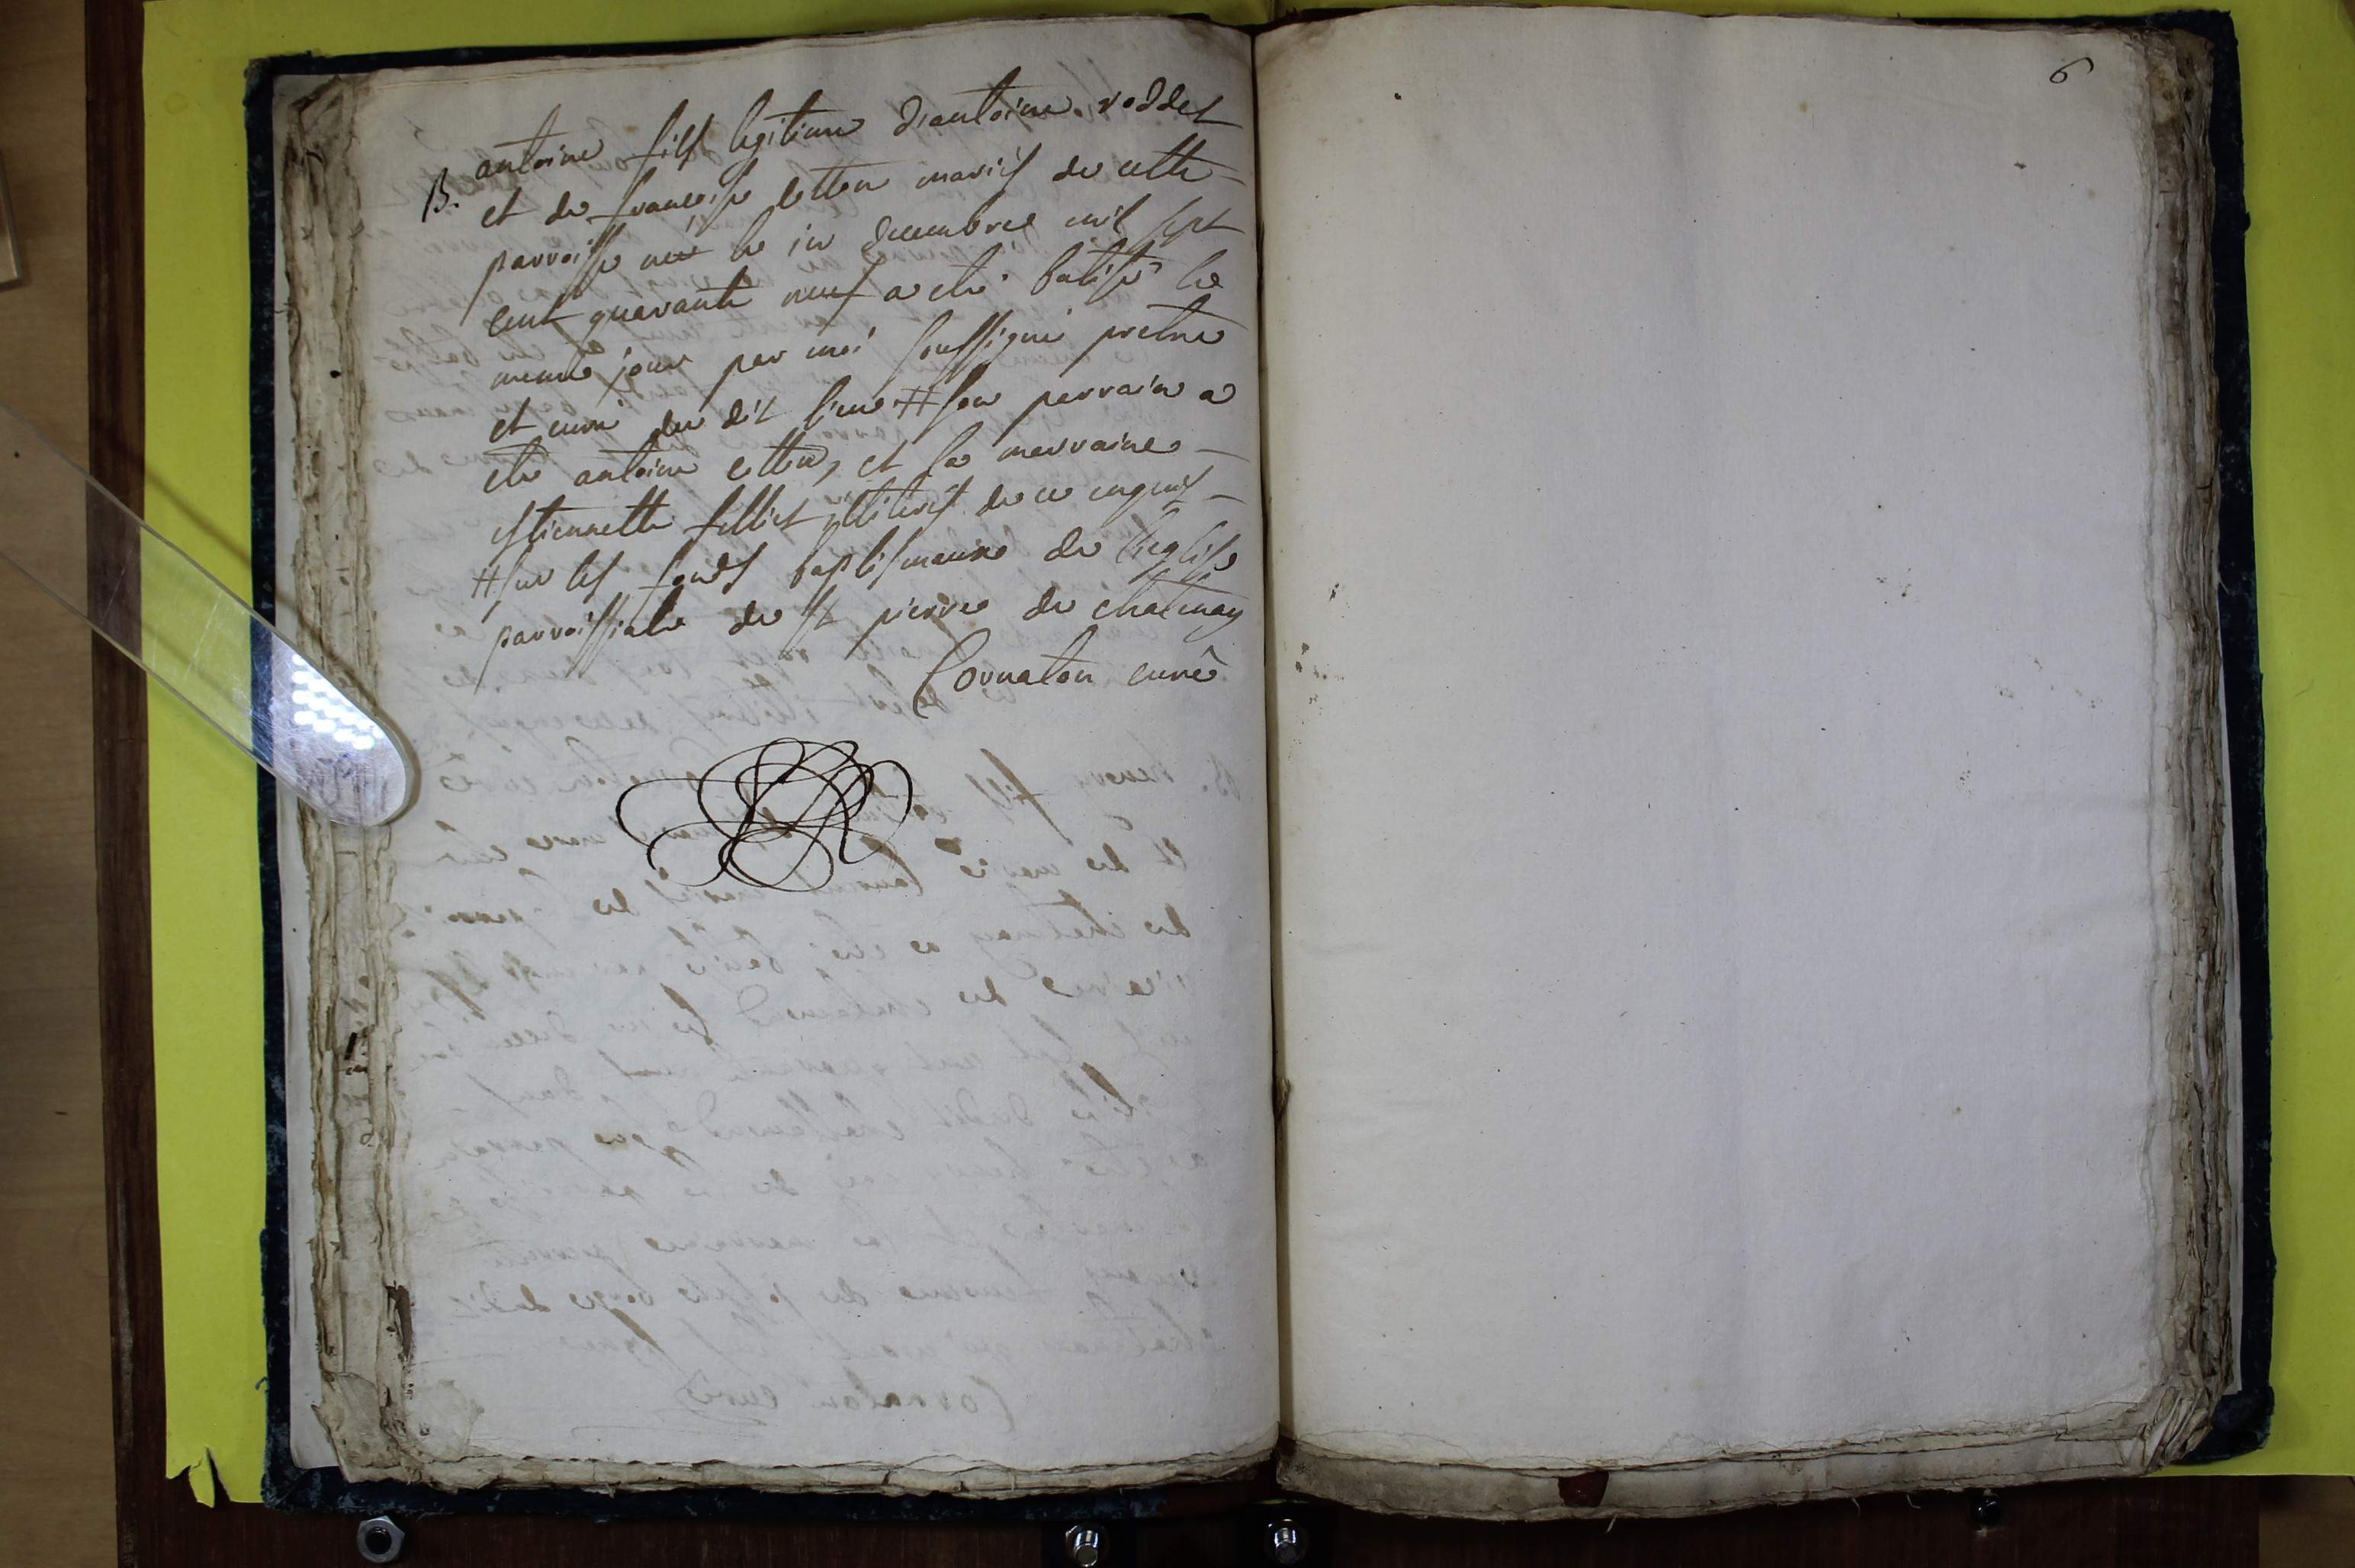 B. antoine fils legitime d'antoine roddet
et de françoise cotton mariés de cette
parroisse né le 10 decembre mil sept
cent quarante neuf a eté batisé le
meme jour par moi soussigné pretre
et curé du dit lieu # son parrain a
eté antoine cotton, et sa marraine
estiennette illiterés de ce enquis
# sur les fonds baptismaux de l'eglise
parroissiale de st pierre de chatenay
Cornaton curé
6